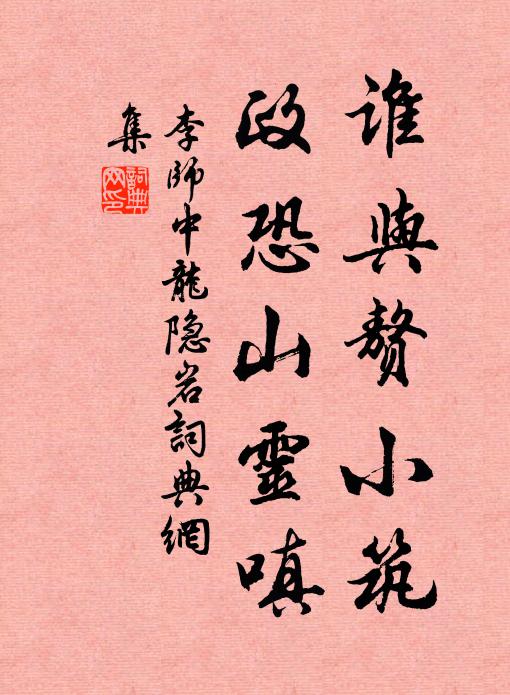 谁與赘小筑
政恐山靈嗔
李師中龍隐岩詞典網
集
詞典
网印